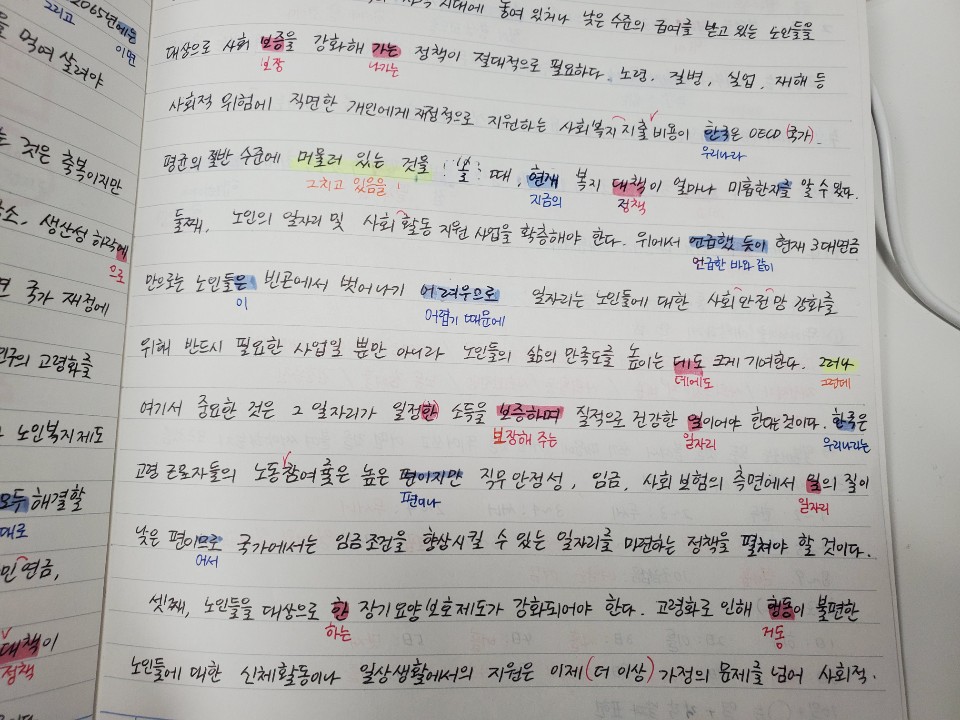 2065년에는
그리고 이면
을 먹여 살려야
는 것은 축복이지만
소, 생산성 하락에
으로
국가 재정에
인구의 고령화를
노인복지제도
모두 해결할
대로
민연금,
대책이
정책
시대에 놓여 있거나 낮은 수준의 급여를 받고 있는 노인들을
대상으로 사회 보증을 강화해 가는 정책이 절대적으로 필요하다. 노령, 질병, 실업, 재해 등
보장 나가는
사회적 위험에 직면한 개인에게 재정적으로 지원하는 사회복지 지출 비용이 한국은 OECD (국가)
우리나라
평균의 절반 수준에 머물러 있는 것을 볼 때, 현재 복지 대책이 얼마나 미흡한지를 알 수 있다.
그치고 있음을 지금의 정책
둘째, 노인의 일자리 및 사회 활동 지원 사업을 확충해야 한다. 위에서 언급했듯이 현재 3대연금
언급한 바와 같이
만으로는 노인들은 빈곤에서 벗어나기 어려우므로 일자리는 노인들에 대한 사회안전망 강화를
이 어렵기 때문에
위해 반드시 필요한 사업일 뿐만 아니라 노인들의 삶의 만족도를 높이는 데도 크게 기여한다. 그러나
데에도 그런데
여기서 중요한 것은 그 일자리가 일정(한) 소득을 보증하며 질적으로 건강한 일이어야 한다는 것이다. 한국은
보장해 주는 일자리 우리나라는
고령 근로자들의 노동참여율은 높은 편이지만 직무 안정성, 임금, 사회 보험의 측면에서 일의 질이
편이나 일자리
낮은 편이므로 국가에서는 임금조건을 향상시킬 수 있는 일자리를 마련하는 정책을 펼쳐야 할 것이다.
어서
셋째, 노인들을 대상으로 한 장기요양보호제도가 강화되어야 한다. 고령화로 인해 행동이 불편한
하는 거동
노인들에 대한 신체활동이나 일상생활에서의 지원은 이제 (더 이상) 가정의 문제를 넘어 사회적